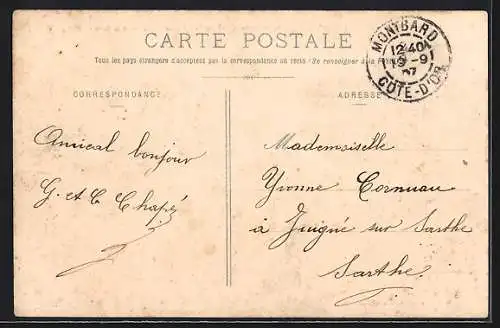 CARTE POSTALE
Tous les pays étrangers n'acceptent pas la correspondance au recto (Se renseigner à la
CORRESPONDANCE
ADRESSE
MONTBARD
12 40
19 - 9
07
CÔTE-D'OR
Amical bonjour
G. et C. Chapé
Mademoiselle
Yvonne Cornuau
à Juigné sur Sarthe
Sarthe.